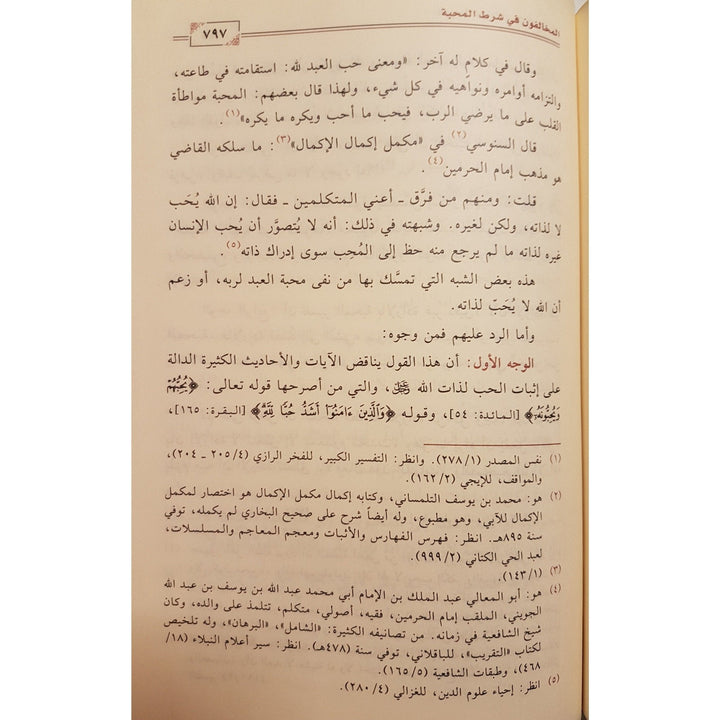 المخالفون في شرط المحبة
٧٩٧
وقال في كلامٍ له آخر: «ومعنى حب العبد لله: استقامته في طاعته،
والتزامه أوامره ونواهيه في كل شيء، ولهذا قال بعضهم: المحبة مواطأة
القلب على ما يرضي الرب، فيحب ما أحب ويكره ما يكره»(١).
قال السنوسي(٢) في «مكمل إكمال الإكمال»(٣): ما سلكه القاضي
هو مذهب إمام الحرمين(٤).
قلت: ومنهم من فرَّق ـ أعني المتكلمين ـ فقال: إن الله يُحَب
لا لذاته، ولكن لغيره. وشبهته في ذلك: أنه لا يُتصوَّر أن يُحب الإنسان
غيره لذاته ما لم يرجع منه حظ إلى المُحِب سوى إدراك ذاته(٥).
هذه بعض الشبه التي تمسَّك بها من نفى محبة العبد لربه، أو زعم
أن الله لا يُحَبّ لذاته.
وأما الرد عليهم فمن وجوه:
الوجه الأول: أن هذا القول يناقض الآيات والأحاديث الكثيرة الدالة
على إثبات الحب لذات الله ﷻ، والتي من أصرحها قوله تعالى: ﴿يُحِبُّهُمْ
وَيُحِبُّونَهُۥٓ﴾ [المائدة: ٥٤]، وقوله ﴿وَٱلَّذِينَ ءَامَنُوٓا۟ أَشَدُّ حُبًّا لِّلَّهِ﴾ [البقرة: ١٦٥]،
(١) نفس المصدر (٢٧٨/١). وانظر: التفسير الكبير، للفخر الرازي (٢٠٥/٤ ـ ٢٠٤)،
والمواقف، للإيجي (١٦٢/٢).
(٢) هو: محمد بن يوسف التلمساني، وكتابه إكمال مكمل الإكمال هو اختصار لمكمل
الإكمال للآبي، وهو مطبوع، وله أيضاً شرح على صحيح البخاري لم يكمله، توفي
سنة ٨٩٥هـ. انظر: فهرس الفهارس والأثبات ومعجم المعاجم والمسلسلات،
لعبد الحي الكتاني (٩٩٩/٢).
(٣) (١٤٣/١).
(٤) هو: أبو المعالي عبد الملك بن الإمام أبي محمد عبد الله بن يوسف بن عبد الله
الجويني، الملقب إمام الحرمين، فقيه، أصولي، متكلم، تتلمذ على والده، وكان
شيخ الشافعية في زمانه. من تصانيفه الكثيرة: «الشامل»، «البرهان»، وله تلخيص
لكتاب «التقريب»، للباقلاني، توفي سنة (٤٧٨هـ). انظر: سير أعلام النبلاء (١٨/
٤٦٨)، وطبقات الشافعية (١٦٥/٥).
(٥) انظر: إحياء علوم الدين، للغزالي (٢٨٠/٤).